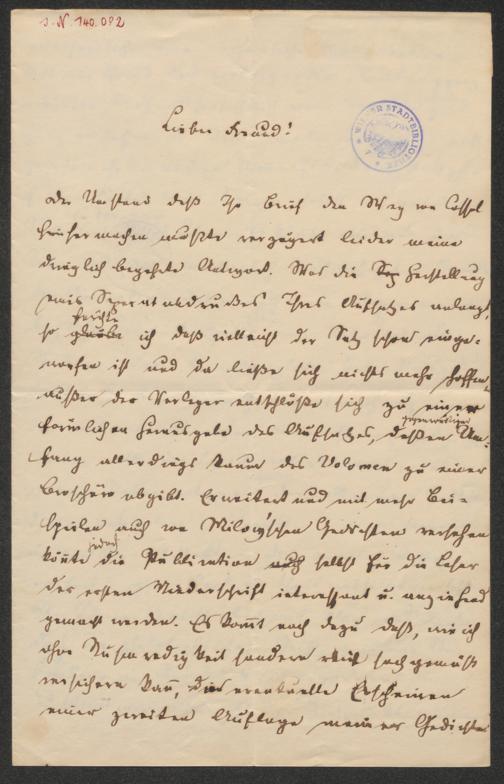 J.N. 140.092
WIENER STADTBIBLIOTHEK
Lieber Freund!
Der Umstand daß Ihr Brief den Weg von Cassel
hieher machen mußte verzögert leider meine
dringlich begehrte Antwort. Was die Herstellung
eines Separatabdruckes Ihres Aufsatzes anlangt,
fürchte
so glaube ich daß vielleicht der Satz schon einge-
worfen ist und da ließe sich nichts mehr hoffen,
außer der Verleger entschlöße sich zu einer
förmlichen Herausgabe des Aufsatzes, dessen Um-
fang allerdings kaum das Volumen zu einer
Broschüre abgibt. Erweitert und mit mehr Bei-
spielen auch von Milow'schen Gedichten versehen
jedoch
könnte die Publication auch selbst für die Leser
der ersten Niederschrift interessant u. anziehend
gemacht werden. Es kommt noch dazu daß, wie ich
ohne Ruhmredigkeit sondern sachgemäß
versichern kann, das eventuelle Erscheinen
einer zweiten Auflage meiner Gedichte